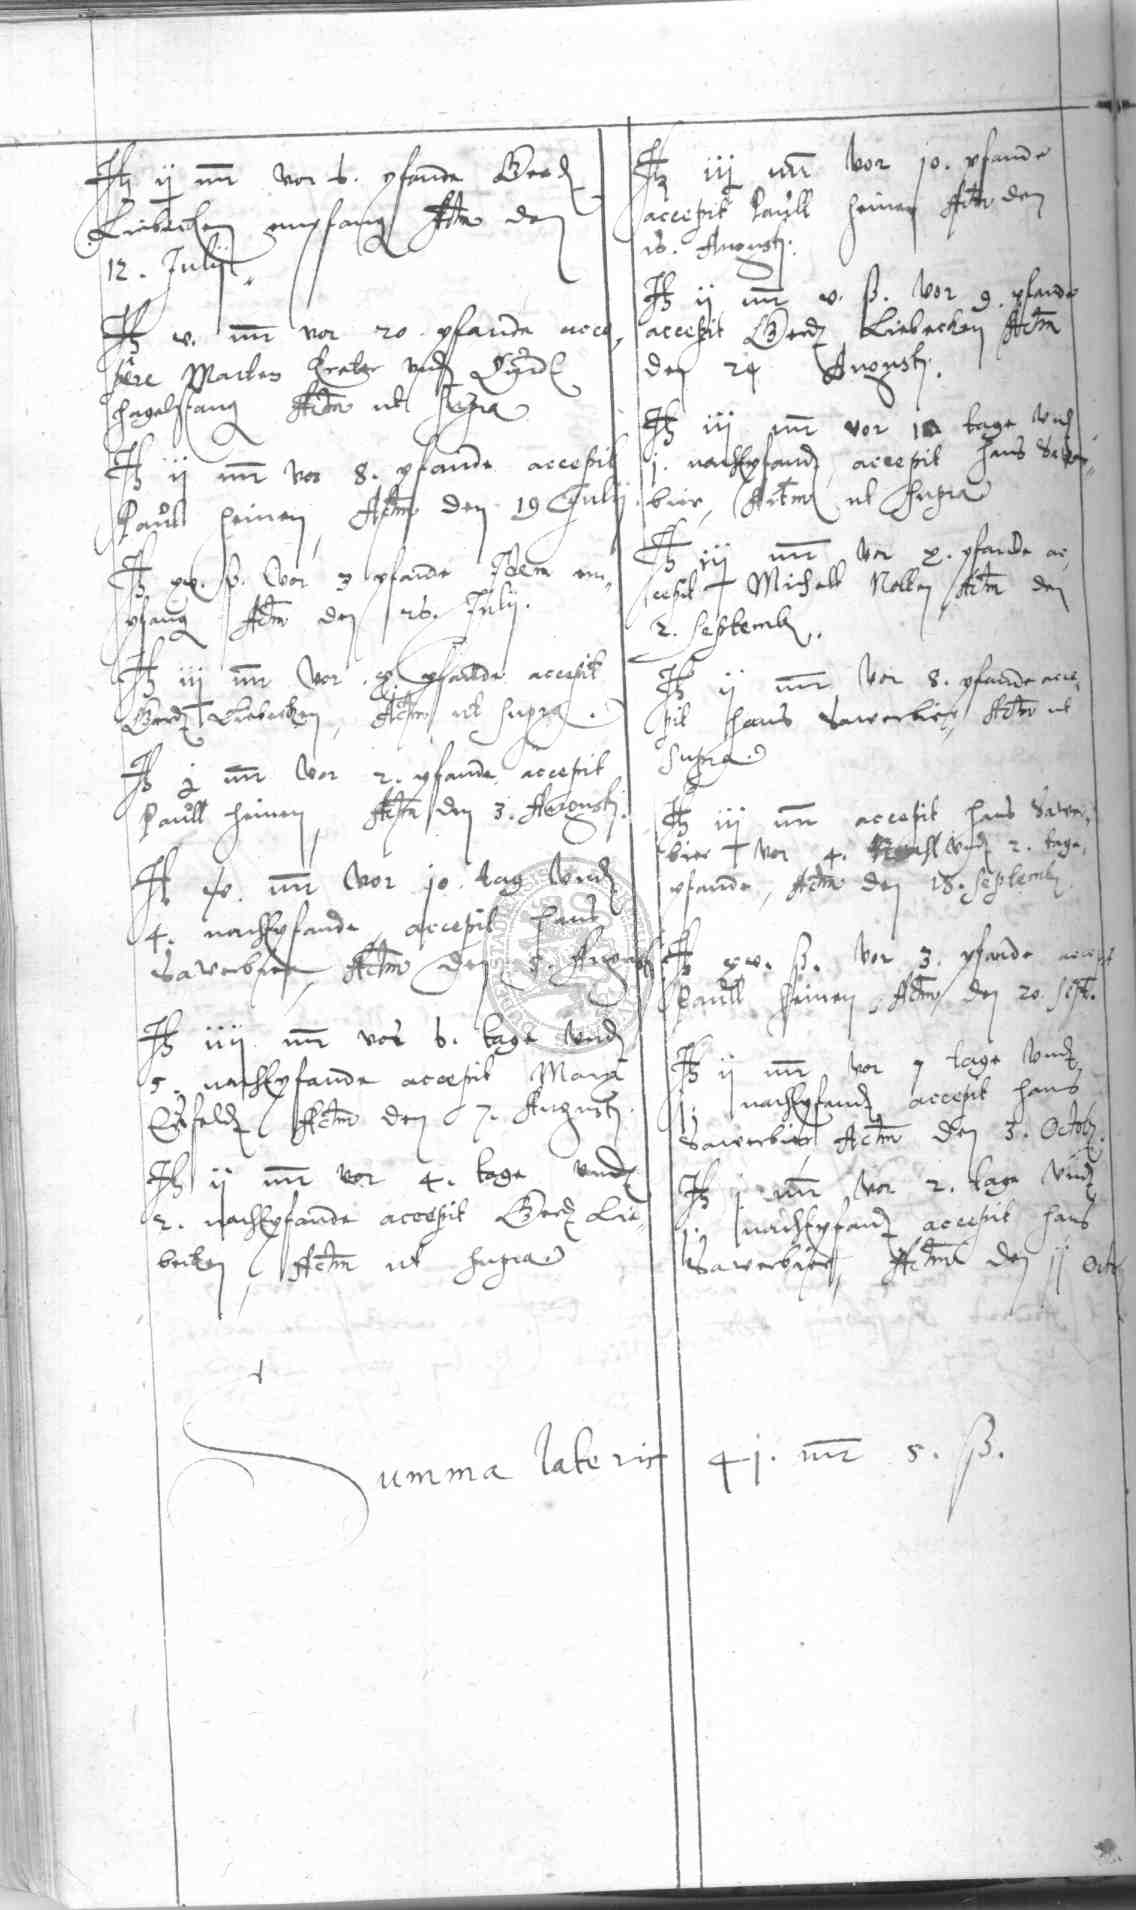 It͠ ij mr vor 6. pfande Gerdt
Liebecken empfang Actm den
12. Julij.
It͠ v. mr vor 20. pfande acce„
pere Marten Krater vnd
hagelstang Actm ut supra
It͠ ij mr vor 8. pfande accepit
Paull Heinen, Actm den 19 Julij
It͠ xv. ß. vor 3 pfande Idem em„
pfang Actm den 26. Julij.
It͠ iij mr vor pfande accepit
Gerdt Liebecken, Actm ut supra.
It͠ mr vor 2. pfande accepit
Paull Heinen, Actm den 3. Augusti.
It͠ iv. mr vor 10. tag vnd
4. nachtpfande, accepit hans
Sawerbier, Actm den 5. Augusti
It͠ iiij mr vor 6. tage vnd
5. nachtpfande accepit
Actm den 7. Augusti.
It͠ ij mr vor 4. tage vnd
2. nachtpfande accepit Gerdt Lie„
becken, Actm ut supra
It͠ iij mr vor 10. pfande
accepit Paull Heinen Actm den
16. Augusti.
It͠ ij mr v. ß. vor 9. pfande
accepit Gerdt Liebecken Actm
den 24 Augusti.
It͠ iij mr vor tage vnd
1. nachtpfand, accepit hans Sawer„
bier, Actm ut supra
It͠ iij mr vor x. pfande ac„
cepit Michell Nolten Actm den
2. Septemb.
It͠ ij mr vor 8. pfande acce„
pit hans Sawerbier, Actm ut
supra.
It͠ iij mr accepit hans Sawer„
bier vor 4. vnd 2. tage„
pfande, Actm den 18. Septemb.
It͠ xv. ß. vor 3. pfande accepit
Paull Heinen, Actm den 20. Sept.
It͠ ij mr vor 7 tage vnd
1. nachtpfand accepit hans
Sawerbier, Actm den 3. Octob.
It͠ j mr vor 2. tage vnd
1. nachtpfand accepit hans
Sawerbier, Actm den ij Octo
Summa lateris 41. mr 5. ß.